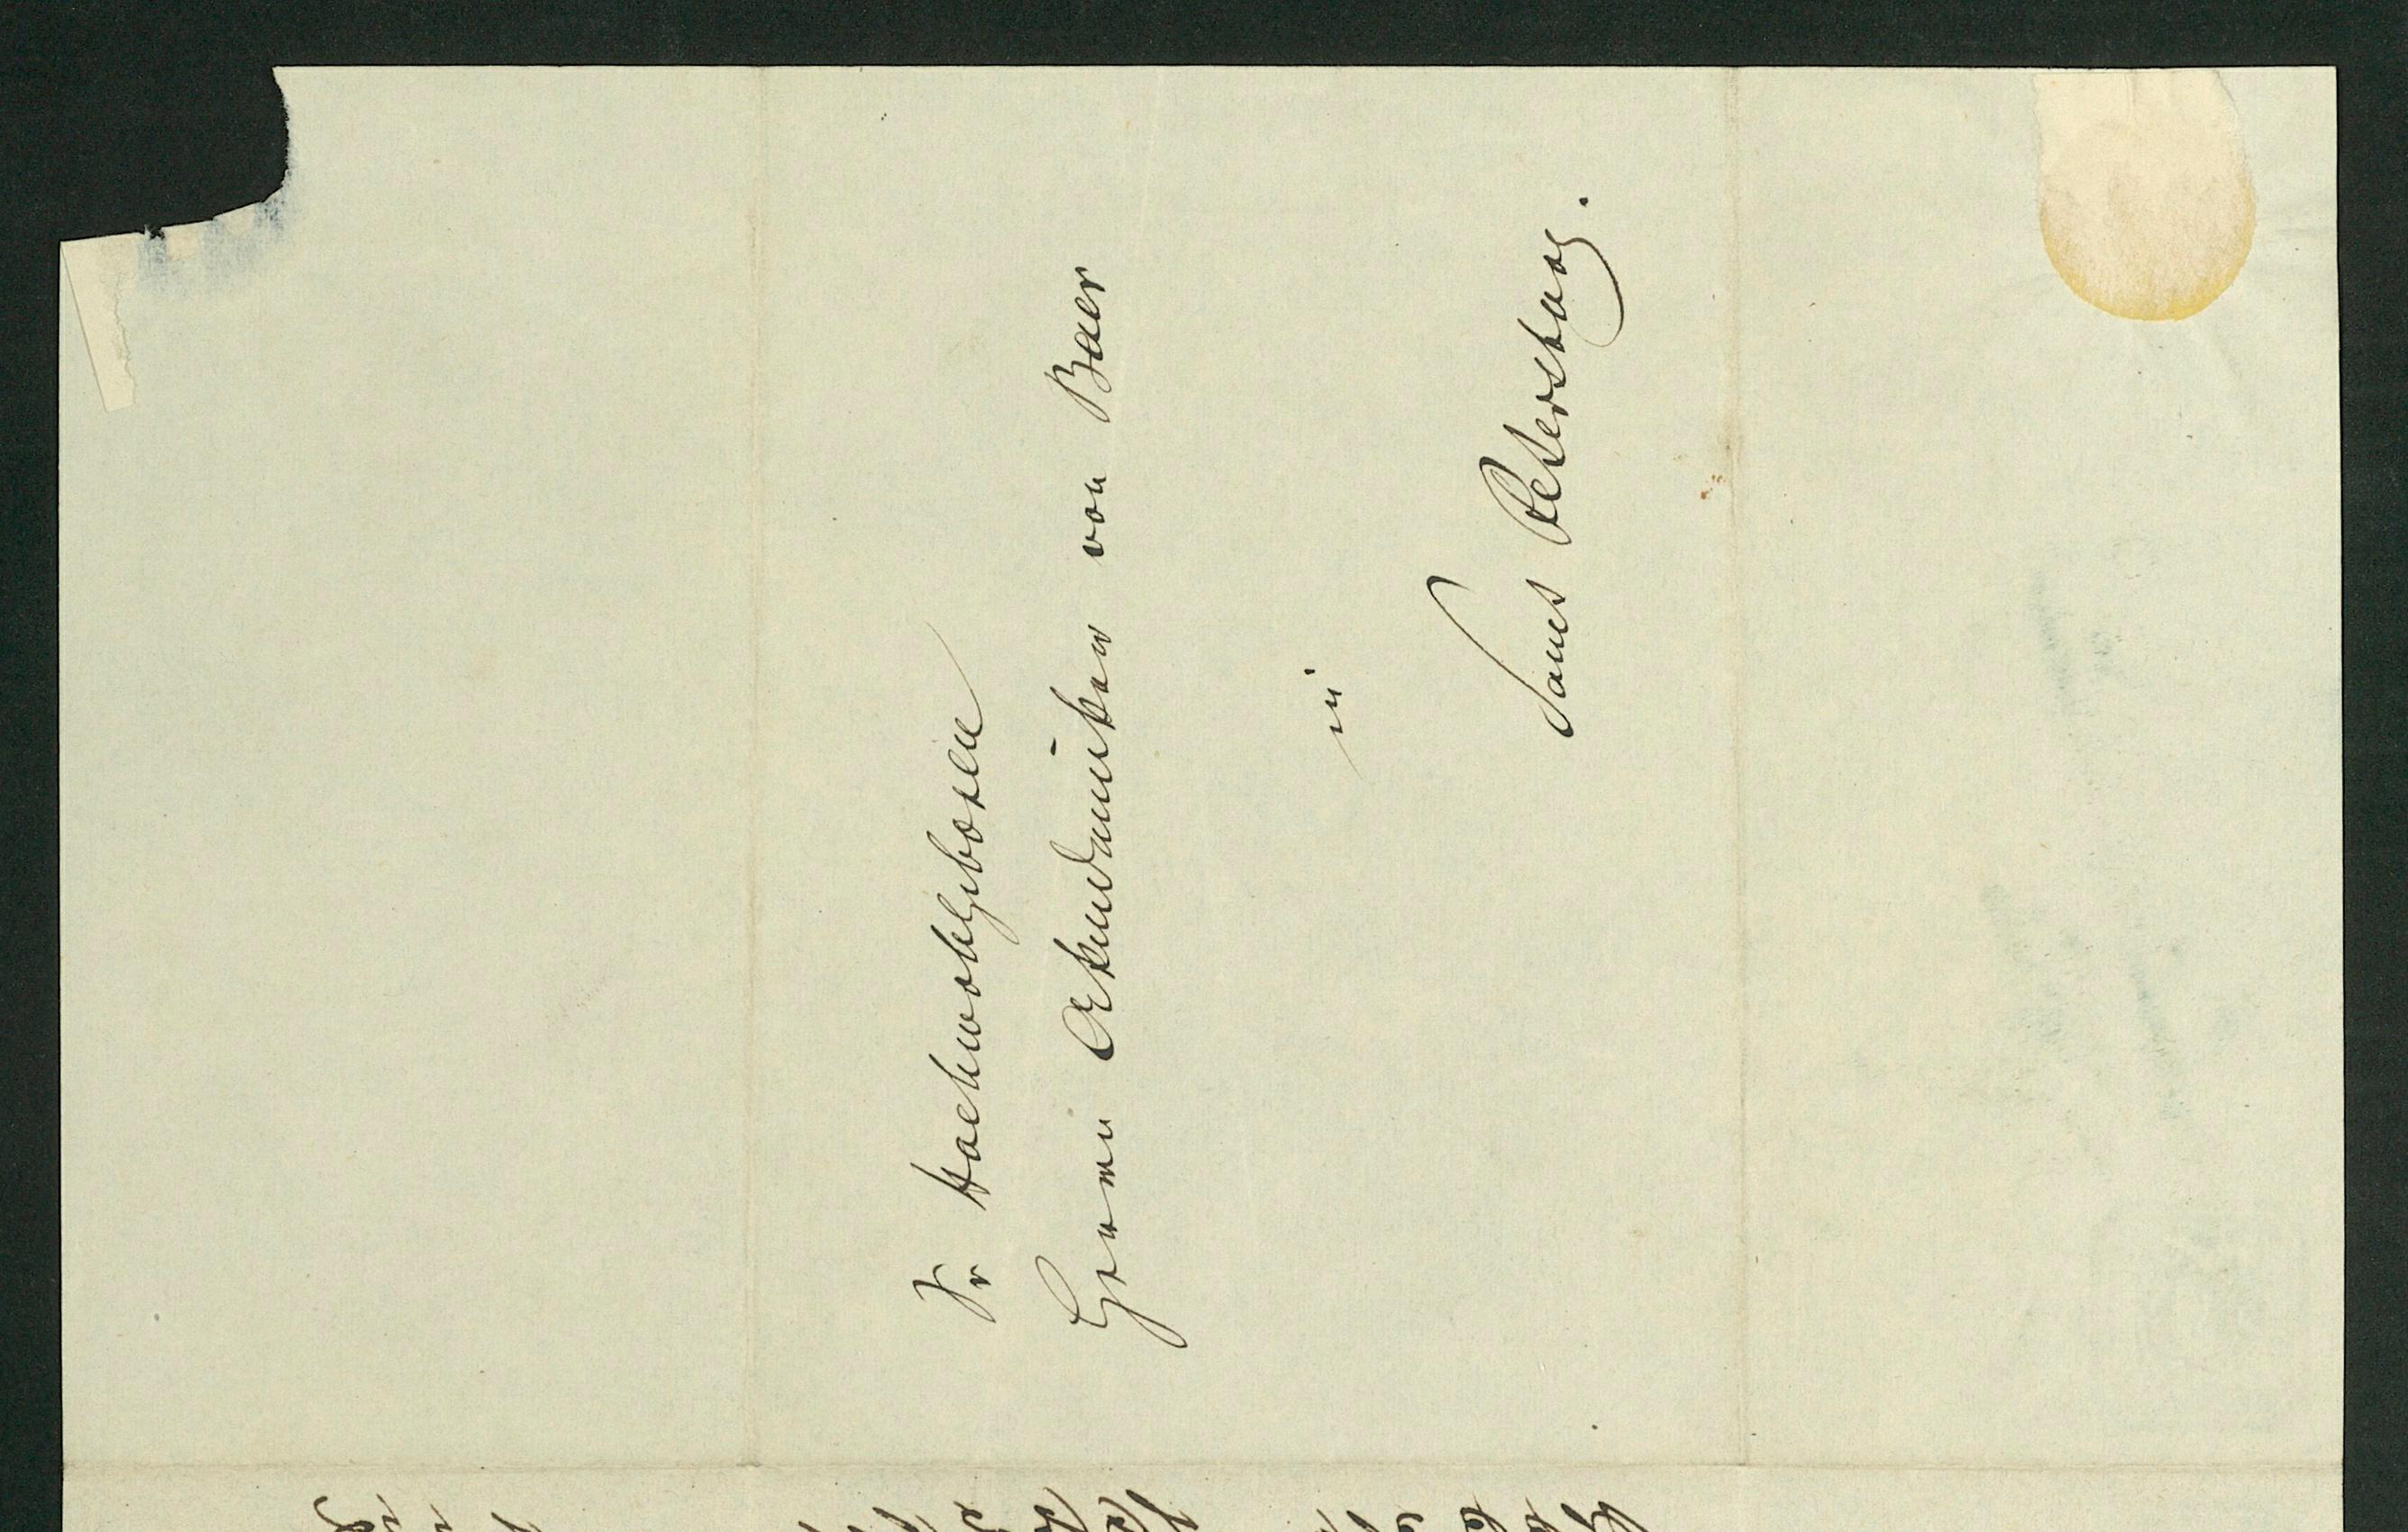 Sr Hochwohlgeboren
Herrn Akademiker von Baer
in
Sanct Petersburg.